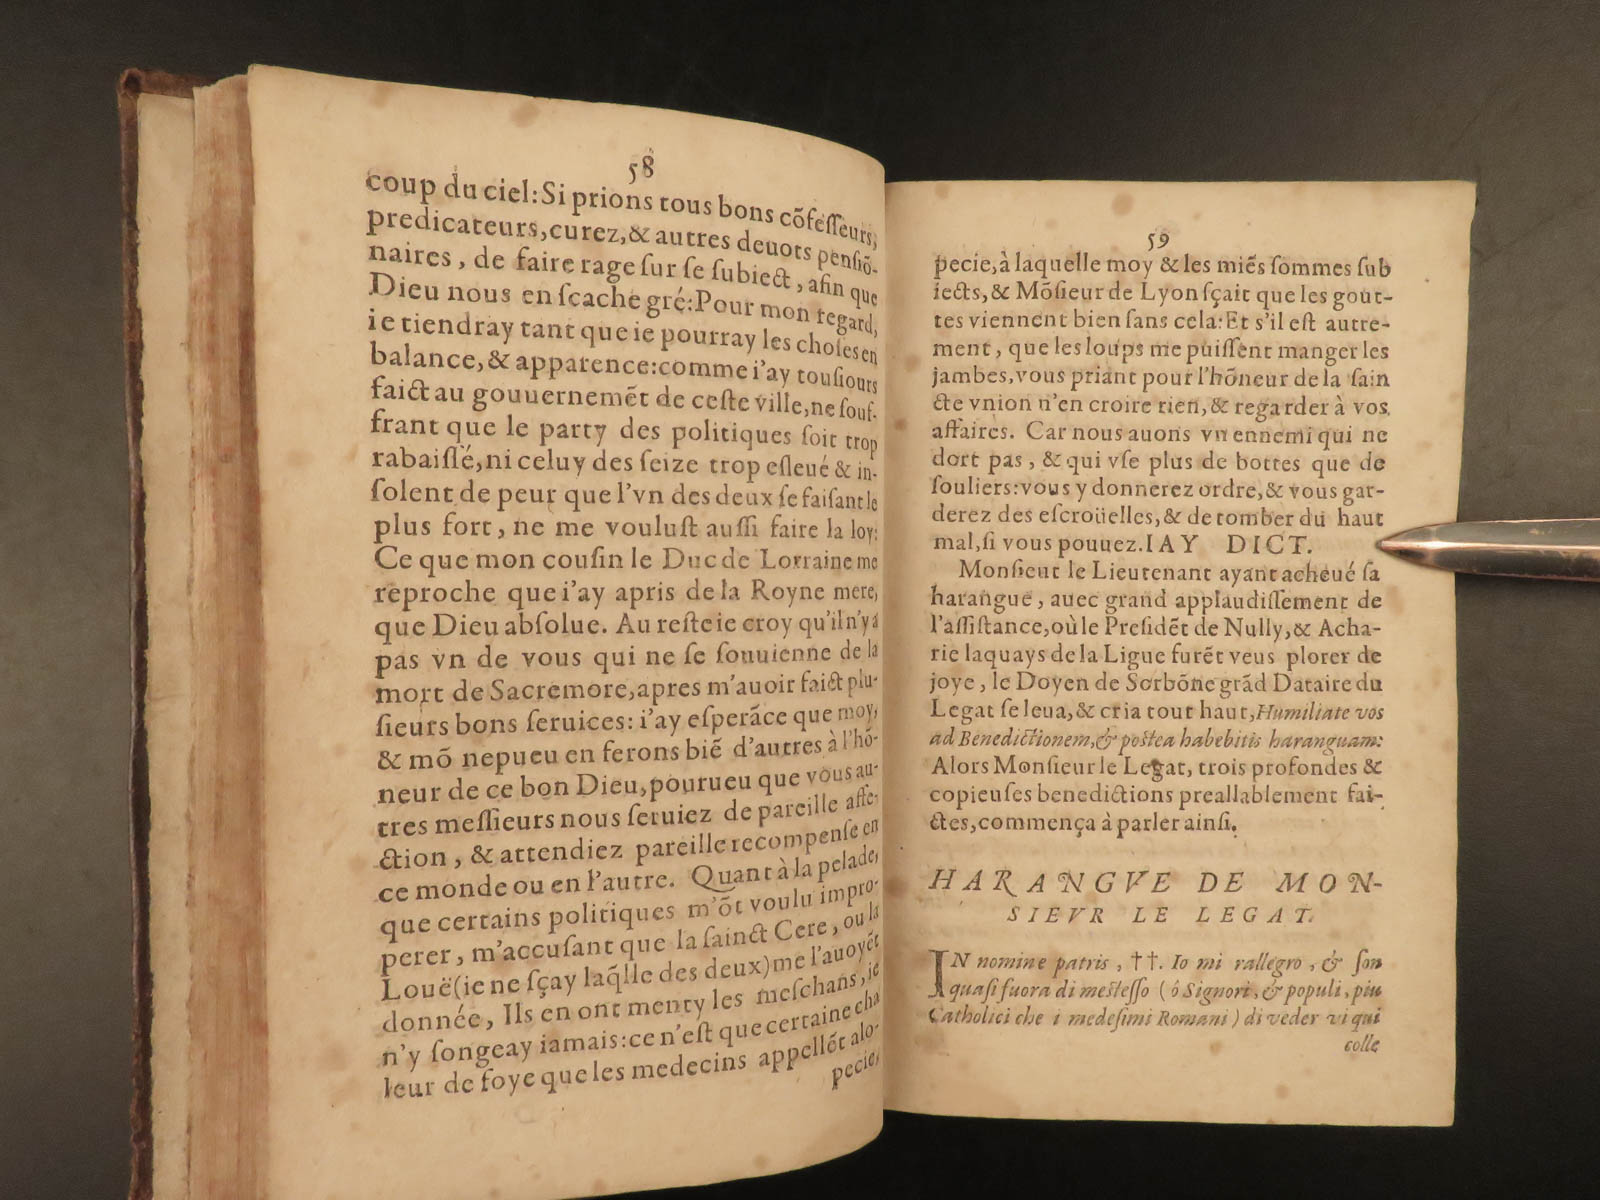 58
coup du ciel: Si prions tous bons cõfeſſeurs,
predicateurs, curez, & autres deuots penſiõ-
naires, de faire rage ſur ſe ſubiect, afin que
Dieu nous en ſcache gré: Pour mon regard,
ie tiendray tant que ie pourray les choſes en
balance, & apparence: comme i'ay touſiours
faict au gouuernemẽt de ceſte ville, ne ſouf-
frant que le party des politiques ſoit trop
rabaiſſé, ni celuy des ſeize trop eſleué & in-
ſolent de peur que l'vn des deux ſe faiſant le
plus fort, ne me vouluſt auſſi faire la loy:
Ce que mon couſin le Duc de Lorraine me
reproche que i'ay apris de la Royne mere,
que Dieu abſolue. Au reſte ie croy qu'il n'y a
pas vn de vous qui ne ſe ſouuienne de la
mort de Sacremore, apres m'auoir faict plu-
ſieurs bons ſeruices: i'ay eſperãce que moy,
& mõ nepueu en ferons biẽ d'autres à l'hõ-
neur de ce bon Dieu, pourueu que vous au-
tres meſſieurs nous ſeruiez de pareille affe-
ction, & attendiez pareille recompenſe en
ce monde ou en l'autre. Quant à la pelade,
que certains politiques m'õt voulu impro-
perer, m'accuſant que la ſainct Cere, ou la
Louë (ie ne ſçay laq̃lle des deux) me l'auoyẽt
donnée, Ils en ont menty les meſchans, je
n'y ſongeay iamais: ce n'eſt que certaine cha
leur de foye que les medecins appellẽt alo-
pecie,
59
pecie, à laquelle moy & les miẽs ſommes ſub
iects, & Mõſieur de Lyon ſçait que les gout-
tes viennent bien ſans cela: Et s'il eſt autre-
ment, que les loups me puiſſent manger les
jambes, vous priant pour l'hõneur de la ſain
cte vnion n'en croire rien, & regarder à vos
affaires. Car nous auons vn ennemi qui ne
dort pas, & qui vſe plus de bottes que de
ſouliers: vous y donnerez ordre, & vous gar-
derez des eſcroüelles, & de tomber du haut
mal, ſi vous pouuez. IAY DICT.
Monſieur le Lieutenant ayant acheué ſa
harangue, auec grand applaudiſſement de
l'aſſiſtance, où le Preſidẽt de Nully, & Acha-
rie laquays de la Ligue furẽt veus plorer de
joye, le Doyen de Sorbõne grãd Dataire du
Legat ſe leua, & cria tout haut, Humiliate vos
ad Benedictionem, & poſtea habebitis haranguam:
Alors Monſieur le Legat, trois profondes &
copieuſes benedictions preallablement fai-
ctes, commença à parler ainſi.
HARANGVE DE MON-
SIEVR LE LEGAT.
IN nomine patris, ††. Io mi rallegro, & ſon
quaſi fuora di meſteſſo (ó Signori, & populi, piu
Catholici che i medeſimi Romani) di veder vi qui
colle